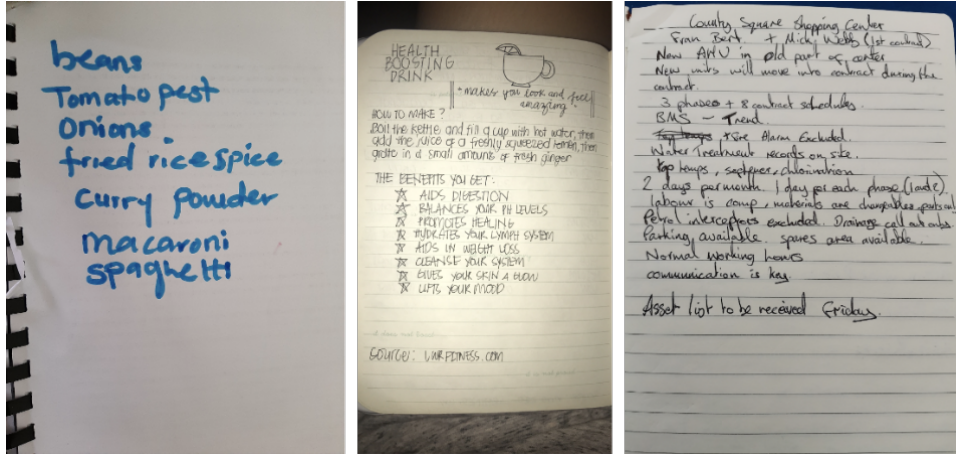 beans
Tomato pest
Onions
fried rice spice
curry powder
macaroni
spaghetti
HEALTH
BOOSTING
DRINK
- makes you look and feel
amazing!
HOW TO MAKE?
BOIL THE KETTLE AND FILL A CUP WITH HOT WATER, then
add the juice of a freshly squeezed lemon, then
grate in a small amount of fresh ginger
THE BENEFITS YOU GET:
AIDS DIGESTION
BALANCES YOUR PH LEVELS
PROMOTES HEALING
HYDRATES YOUR LYMPH SYSTEM
AIDS IN WEIGHT LOSS
CLEANSE YOUR SYSTEM
GIVES YOUR SKIN A GLOW
LIFTS YOUR MOOD
SOURCE:
County Square Shopping Center
Fran Bert. + Micky Webb (1st contact)
New AHU in old part of center
New units will move into contract during the
contract.
3 phases + 8 contract schedules.
BMS ~ Trend.
Fire Alarm Excluded.
Water Treatment records on site.
temps, chlorination
2 days per month. 1 day for each phase
labour is comp, materials are chargeable, parts only
Petrol interceptors excluded. Drainage call out
Parking available. spares area available.
Normal working hours
communication is key.
Asset list to be received Friday.